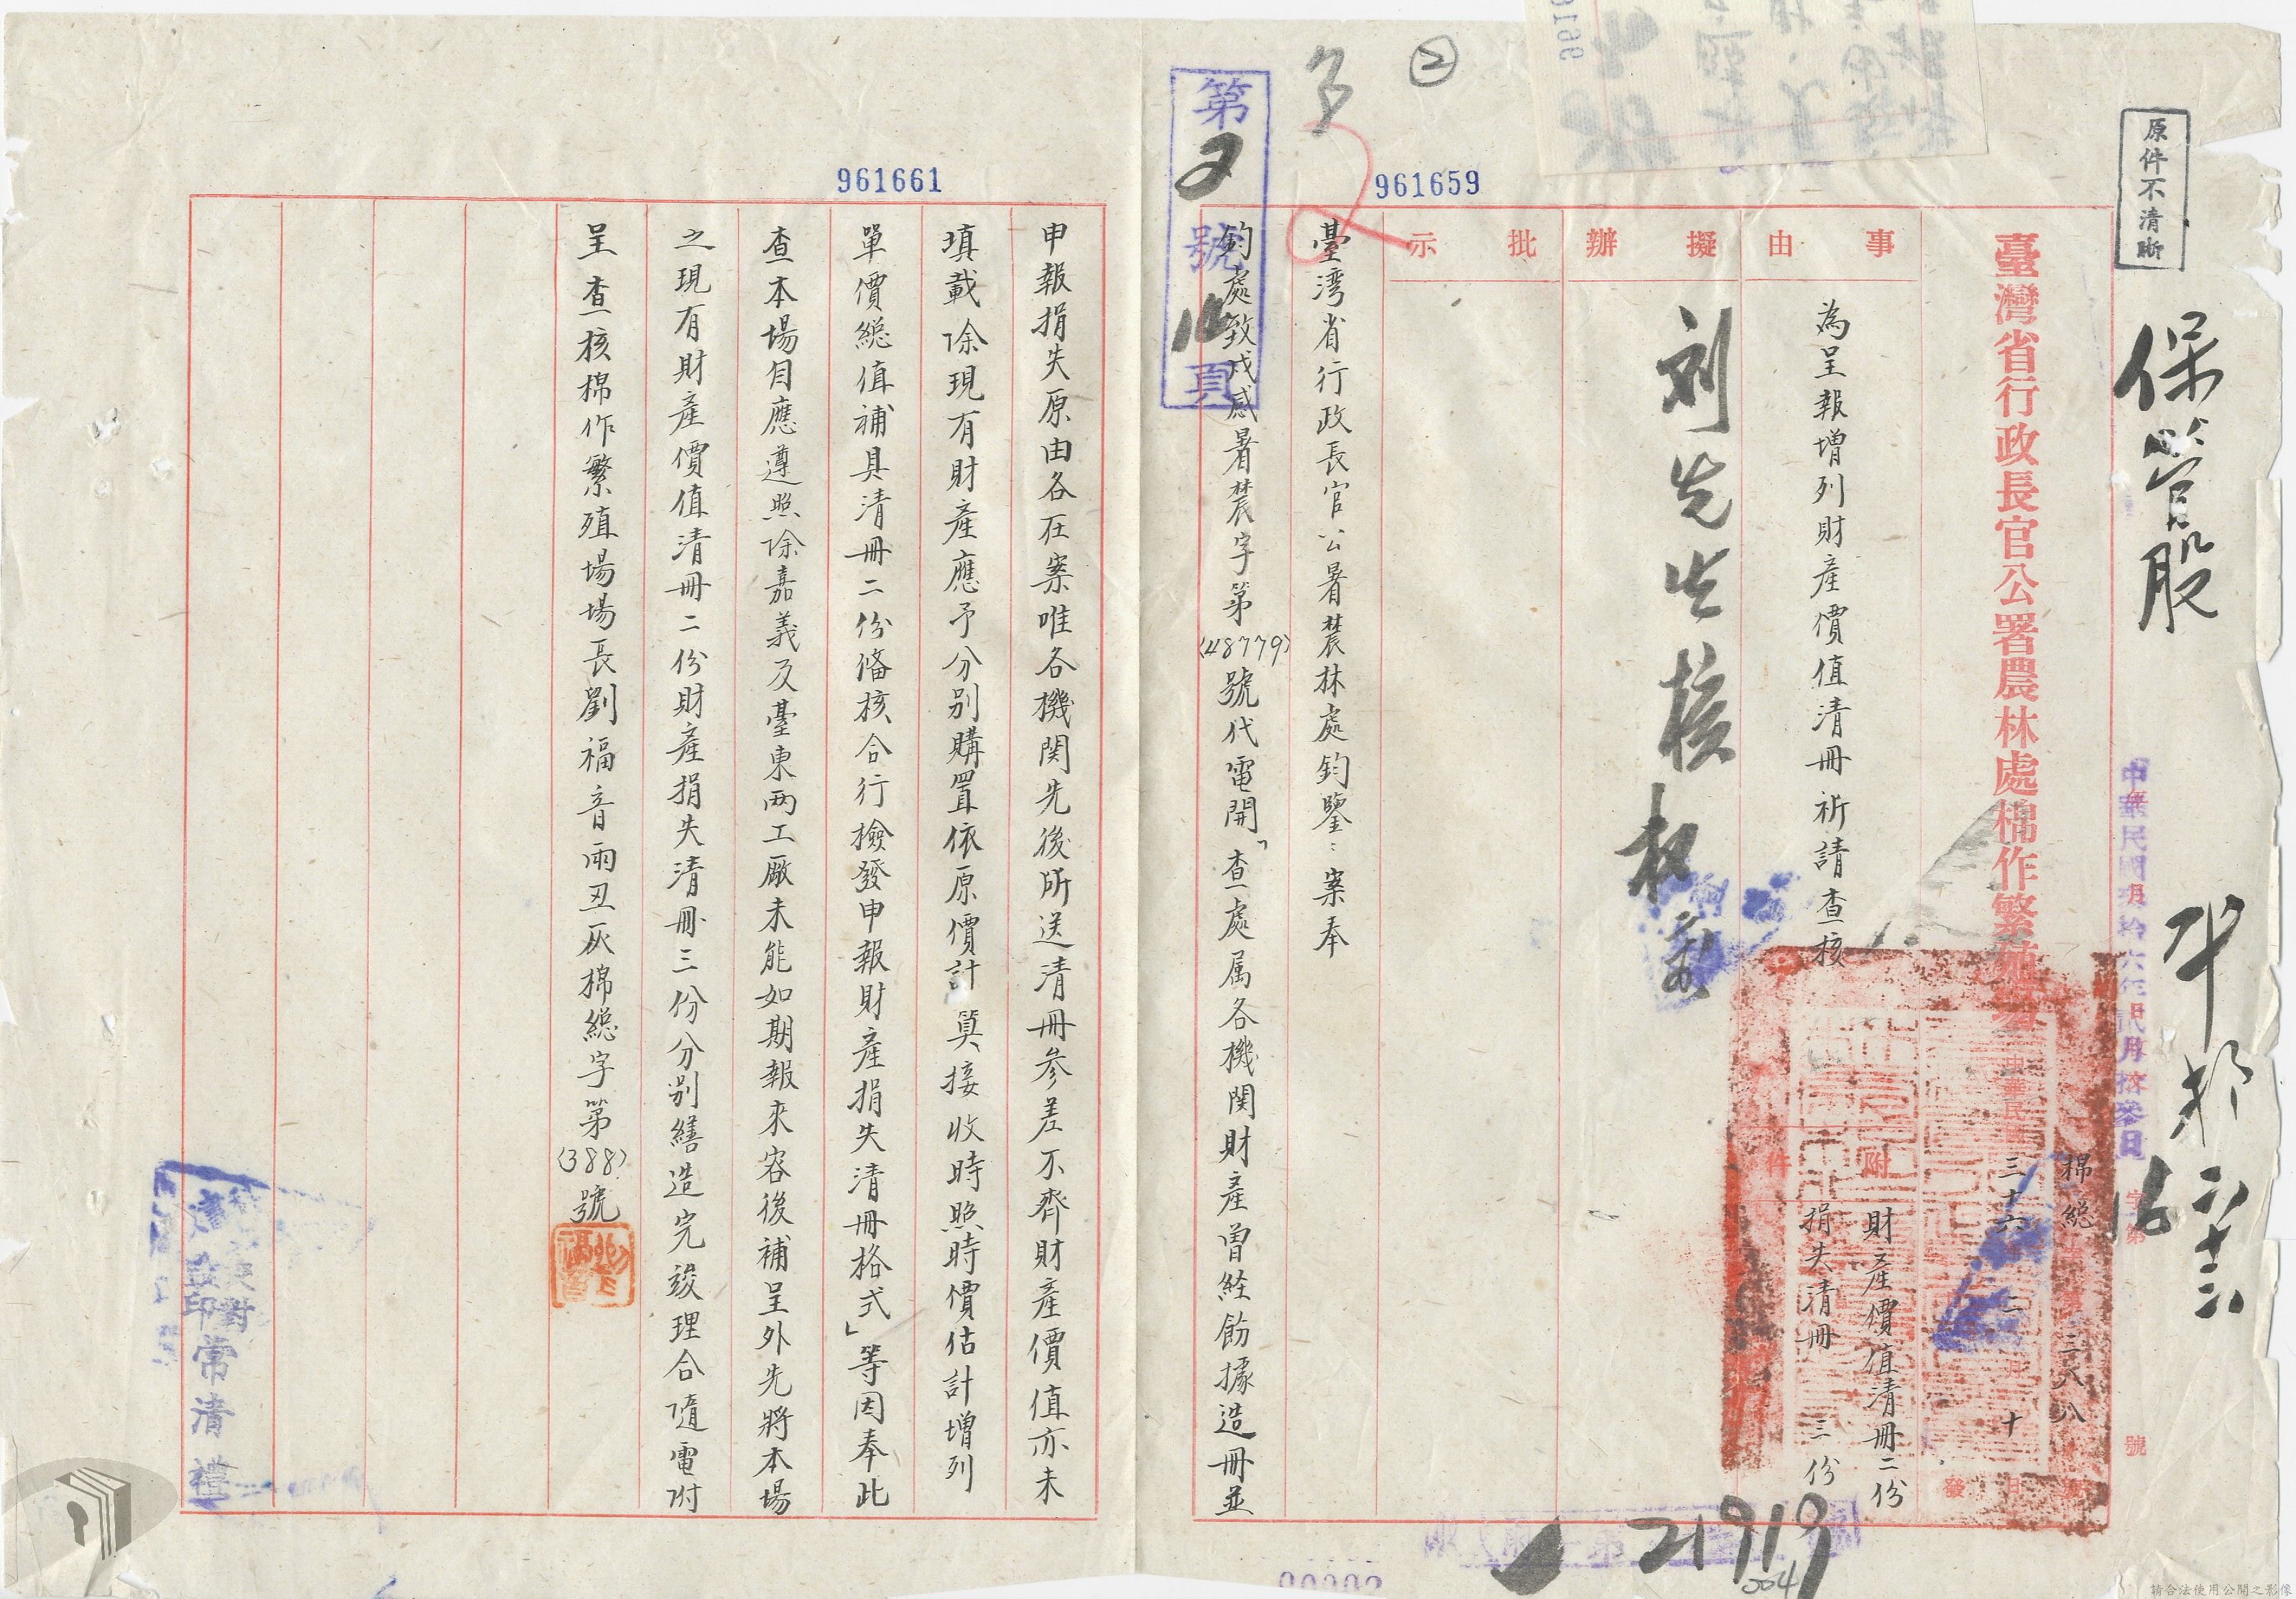 原件不清晰
保管股
臺灣省行政長官公署農林處棉作繁殖場
棉總
三八八
三十六
二
十
事由
為呈報增列財產價值清冊祈請查核
附件
財產價值清冊二份
損失清冊三份
擬辦
刘先生核
批示
961659
臺湾省行政長官公署農林處鈞鑒:案奉
鈞處致戌感署農字第(48779)號代電開「查處属各機関財產曾経飭據造冊並
第2號
頁
②
961661
申報損失原由各在案唯各機関先後所送清冊参差不齊財產價值亦未
填載除現有財產應予分别購置依原價計算接收時照時價估計增列
單價總值補具清冊二份俻核合行檢發申報財產損失清冊格式」等因奉此
查本場自應遵照除嘉義及臺東両工廠未能如期報來容後補呈外先將本場
之現有財產價值清冊二份財產損失清冊三份分别繕造完竣理合隨電附
呈查核棉作繁殖場場長劉福音雨丑灰棉總字第(388)號
校對
監印
常清
21919
004
請合法使用公開之影像